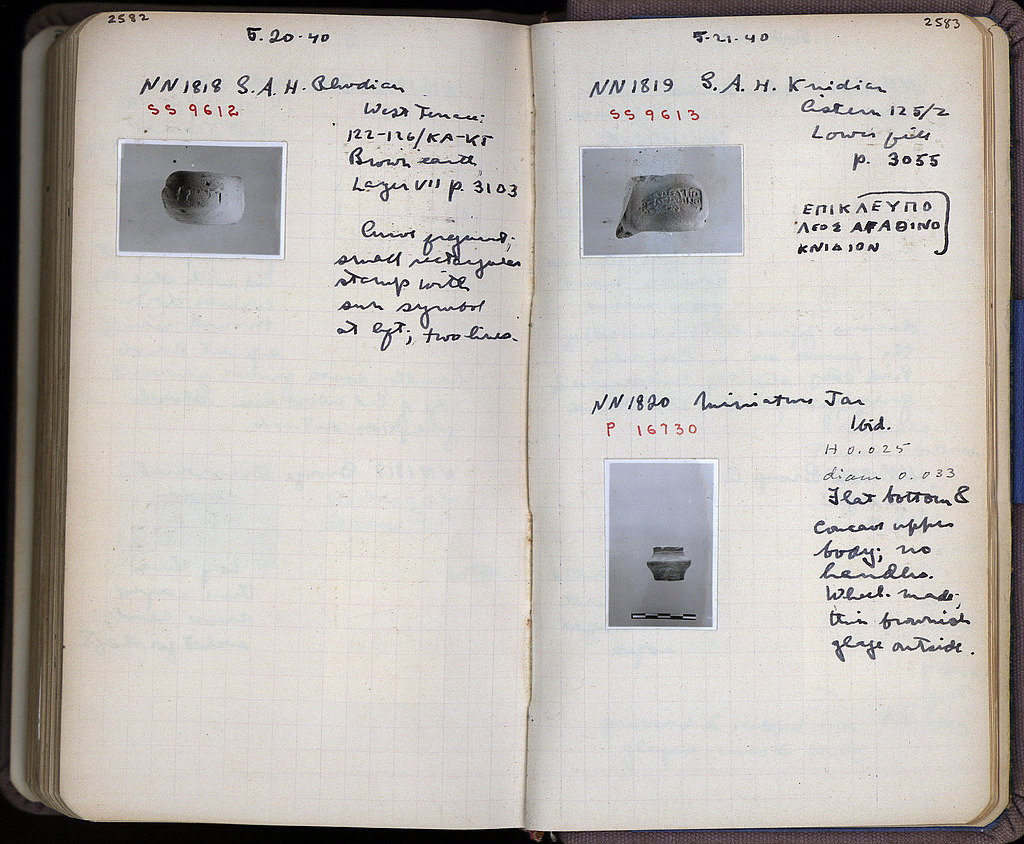 2582
5.20.40
NN 1818 S.A.H. Rhodian
SS 9612
West Terrace:
122-126/KA-KΣT
Brown earth,
Layer VII p. 3103
fragment;
small rectangular
stamp with
sun symbol
at left; two lines.
2583
5.21.40
NN 1819 S.A.H. Knidian
SS 9613
Cistern 125/2
Lower fill
p. 3055
ΕΠΙΚΛΕΥΠΟ
ΛΕΟΣ ΑΓΑΘΙΝΟ
ΚΝΙΔΙΟΝ
NN 1820 Miniature Jar
P 16730
Ibid.
H 0.025
diam 0.033
Flat bottom &
Concave upper
body; no
handles.
Wheel-made;
thin brownish
glaze outside.